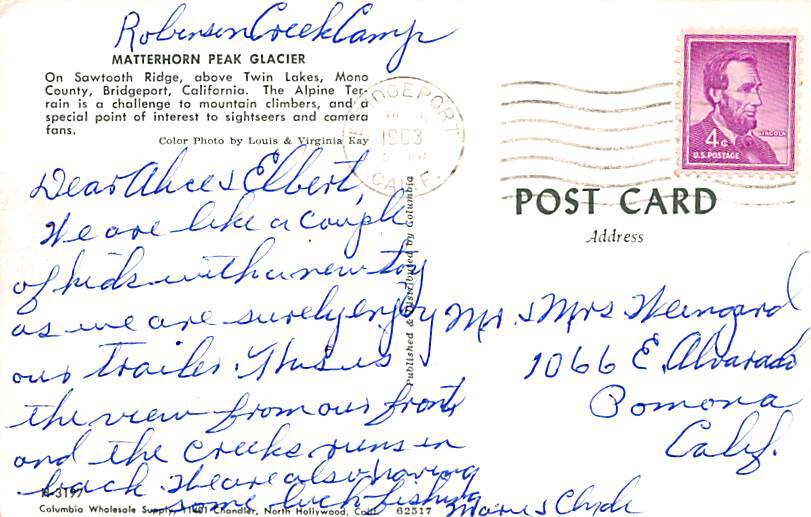 Robinson Creek Camp
MATTERHORN PEAK GLACIER
On Sawtooth Ridge, above Twin Lakes, Mono
County, Bridgeport, California. The Alpine Ter-
rain is a challenge to mountain climbers, and a
special point of interest to sightseers and camera
fans.
Color Photo by Louis & Virginia Kay
BRIDGEPORT
1963
CALIF.
4¢
LINCOLN
U.S. POSTAGE
POST CARD
Address
Dear Alice & Elbert,
We are like a couple
of kids with a new toy
as we are surely enjoy
our trailer. This is
the view from our front
and the creeks runs in
back. We are also having
some luck fishing
Clyde
Mr. & Mrs Weingard
1066 E. Alvarado
Pomona
Calif.
Published & Distributed by Columbia
N-3197
Columbia Wholesale Supply, 11401 Chandler, North Hollywood, Calif. 62517